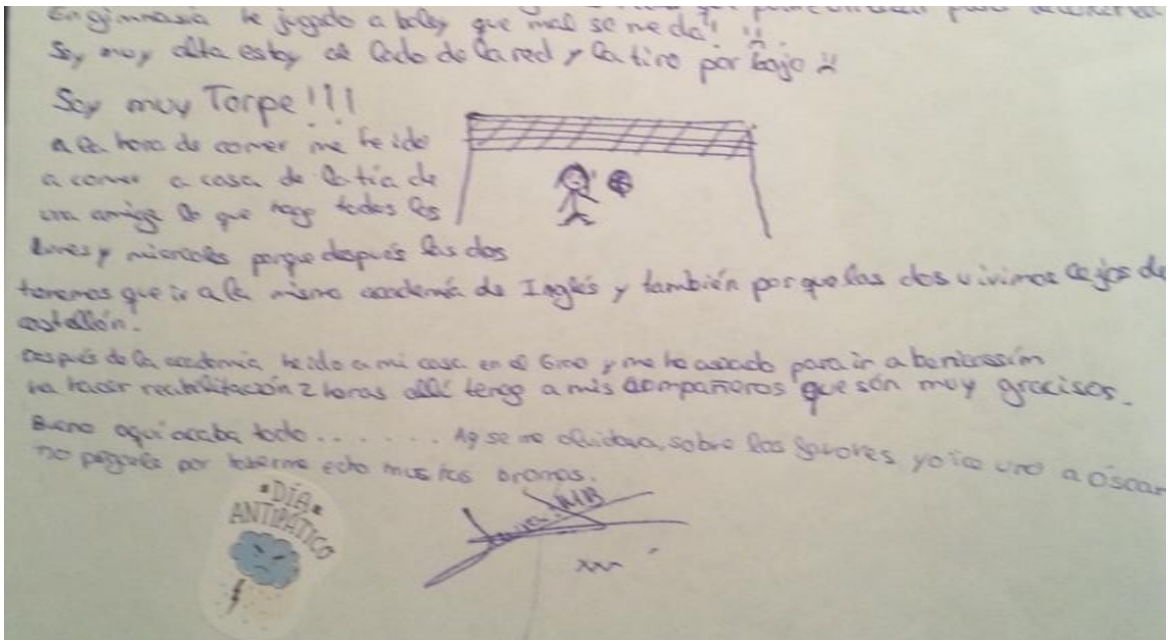 En gimnasia he jugado a boley que mal se me da!! 
Soy muy alta estoy al lado de la red y la tiro por bajo
Soy muy Torpe!!!
a la hora de comer me he ido
a comer a casa de la tía de
una amiga lo que hago todos los
lunes y miercoles porque después las dos
tenemos que ir a la misma academia de Inglés y también porque las dos vivimos lejos de
castellón.
Después de la academia he ido a mi casa en el 6mo y me he para ir a benicassim
ha hacer rehabilitación 2 horas allí tengo a mis compañeros que són muy graciosos.
Bueno aquí acaba todo....... Ay se me olvidava, sobre los favores yo ice uno a oscar
no pegarle por haberme echo bromas.
•DÍA•
ANTIPÁTICO